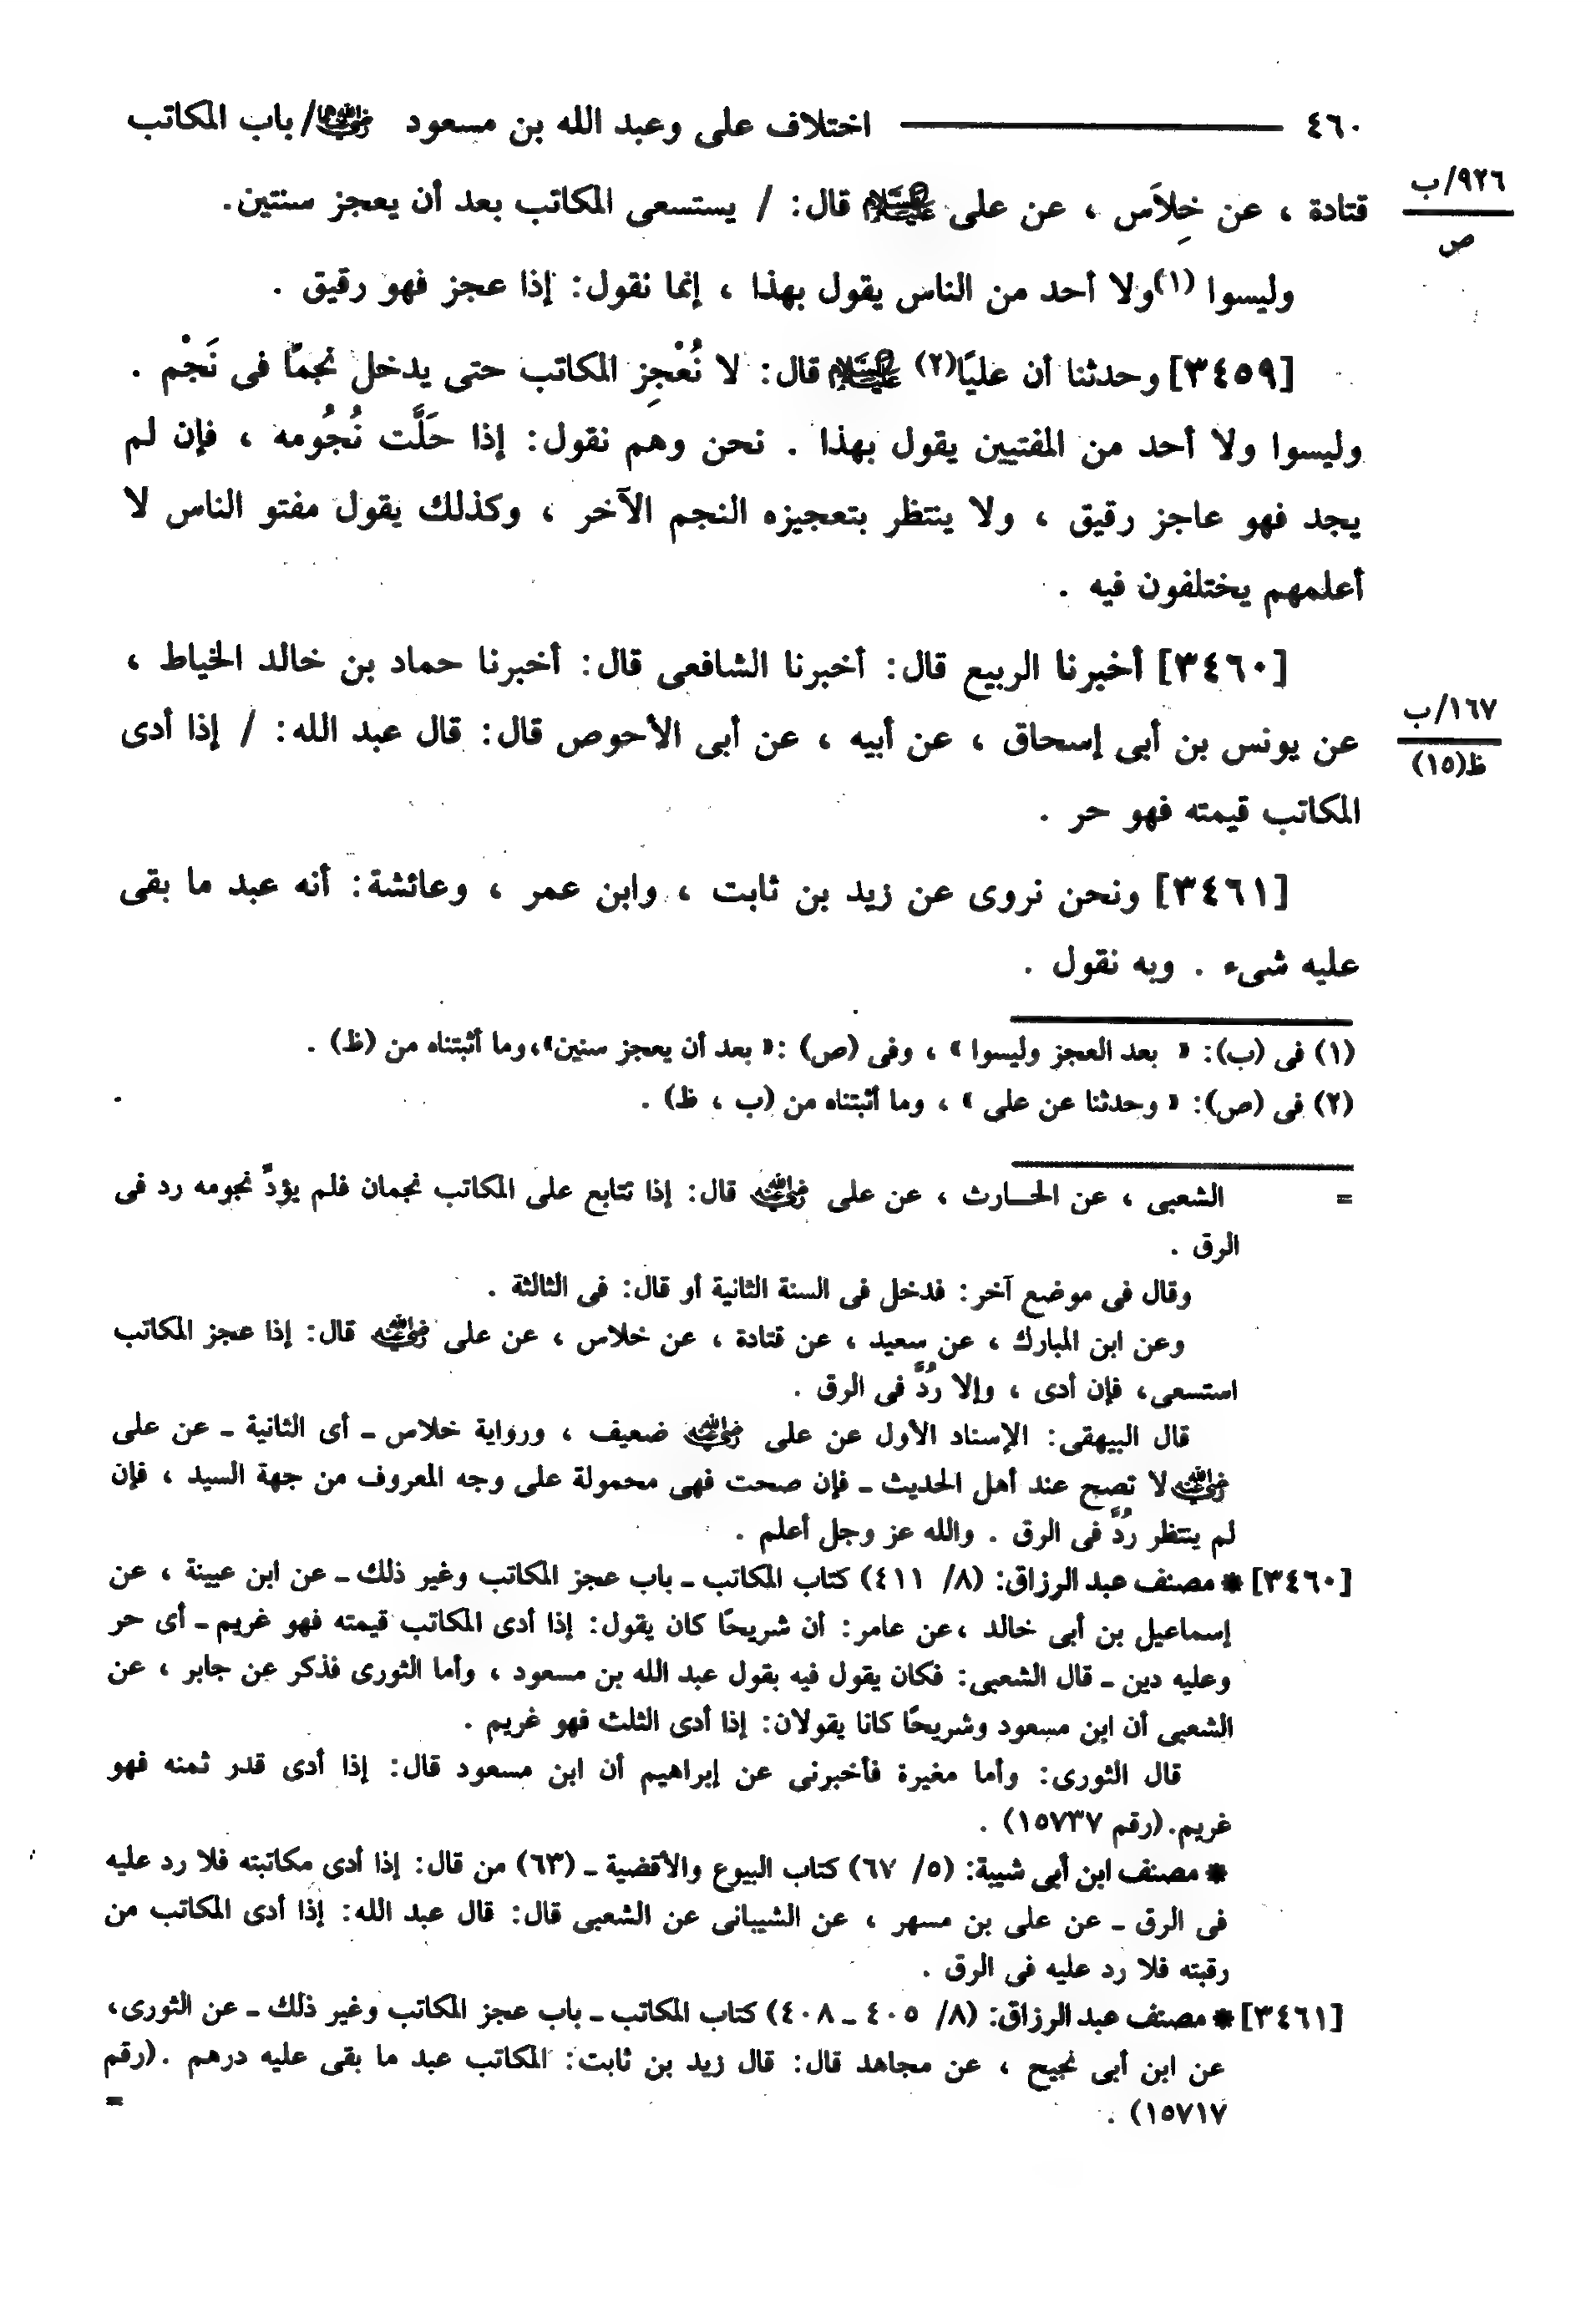 ٤٦٠ ــــــــــ اختلاف على وعبد الله بن مسعود رضي الله عنهما/ باب المكاتب
٩٢٦/ب
ص
قتادة ، عن خِلاَس ، عن على عليه السلام قال: / يستسعى المكاتب بعد أن يعجز سنتين.
وليسوا (١)ولا أحد من الناس يقول بهذا ، إنما نقول: إذا عجز فهو رقيق .
[٣٤٥٩] وحدثنا أن عليًا(٢) عليه السلام قال: لا نُعْجِز المكاتب حتى يدخل نجمًا فى نَجْم .
وليسوا ولا أحد من المفتيين يقول بهذا . نحن وهم نقول: إذا حَلَّت نُجُومه ، فإن لم
يجد فهو عاجز رقيق ، ولا ينتظر بتعجيزه النجم الآخر ، وكذلك يقول مفتو الناس لا
أعلمهم يختلفون فيه .
[٣٤٦٠] أخبرنا الربيع قال: أخبرنا الشافعى قال: أخبرنا حماد بن خالد الخياط ،
١٦٧/ب
ظ(١٥)
عن يونس بن أبى إسحاق ، عن أبيه ، عن أبى الأحوص قال: قال عبد الله: / إذا أدى
المكاتب قيمته فهو حر .
[٣٤٦١] ونحن نروى عن زيد بن ثابت ، وابن عمر ، وعائشة: أنه عبد ما بقى
عليه شىء . وبه نقول .
(١) فى (ب): « بعد العجز وليسوا » ، وفى (ص) :« بعد أن يعجز سنين»،وما أثبتناه من (ظ) .
(٢) فى (ص): « وحدثنا عن على » ، وما أثبتناه من (ب ، ظ) .
= الشعبى ، عن الحــارث ، عن على رضي الله عنه قال: إذا تتابع على المكاتب نجمان فلم يؤدِّ نجومه رد فى
الرق .
وقال فى موضع آخر: فدخل فى السنة الثانية أو قال: فى الثالثة .
وعن ابن المبارك ، عن سعيد ، عن قتادة ، عن خلاس ، عن على رضي الله عنه قال: إذا عجز المكاتب
استسعى، فإن أدى ، وإلا رُدَّ فى الرق .
قال البيهقى: الإسناد الأول عن على رضي الله عنه ضعيف ، ورواية خلاس ـ أى الثانية ـ عن على
رضي الله عنه لا تصح عند أهل الحديث ـ فإن صحت فهى محمولة على وجه المعروف من جهة السيد ، فإن
لم ينتظر رُدَّ فى الرق . والله عز وجل أعلم .
[٣٤٦٠] * مصنف عبد الرزاق: (٨/ ٤١١) كتاب المكاتب ـ باب عجز المكاتب وغير ذلك ـ عن ابن عيينة ، عن
إسماعيل بن أبى خالد ،عن عامر: أن شريحًا كان يقول: إذا أدى المكاتب قيمته فهو غريم ـ أى حر
وعليه دين ـ قال الشعبى: فكان يقول فيه بقول عبد الله بن مسعود ، وأما الثورى فذكر عن جابر ، عن
الشعبى أن ابن مسعود وشريحًا كانا يقولان: إذا أدى الثلث فهو غريم .
قال الثورى: وأما مغيرة فأخبرنى عن إبراهيم أن ابن مسعود قال: إذا أدى قدر ثمنه فهو
غريم.(رقم ١٥٧٣٧) .
* مصنف ابن أبى شيبة: (٥/ ٦٧) كتاب البيوع والأقضية ـ (٦٣) من قال: إذا أدى مكاتبته فلا رد عليه
فى الرق ـ عن على بن مسهر ، عن الشيبانى عن الشعبى قال: قال عبد الله: إذا أدى المكاتب من
رقبته فلا رد عليه فى الرق .
[٣٤٦١] * مصنف عبد الرزاق: (٨/ ٤٠٥ ـ ٤٠٨) كتاب المكاتب ـ باب عجز المكاتب وغير ذلك ـ عن الثورى،
عن ابن أبى نجيح ، عن مجاهد قال: قال زيد بن ثابت: المكاتب عبد ما بقى عليه درهم .(رقم
١٥٧١٧) . =